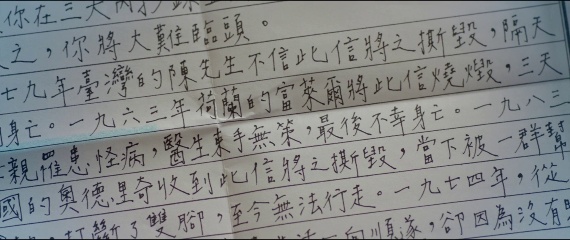 你在三天內抄錄
之，你將大難臨頭。
七九年臺灣的陳先生不信此信將之撕毀，隔天
身亡。一九六三年荷蘭的富萊爾將此信燒燬，三天
親罹患怪病，醫生束手無策，最後不幸身亡。一九八三
國的奧德里奇收到此信將之撕毀，當下被一群幫
打斷了雙腳，至今無法行走。一九七四年，從
向順遂，卻因為沒有